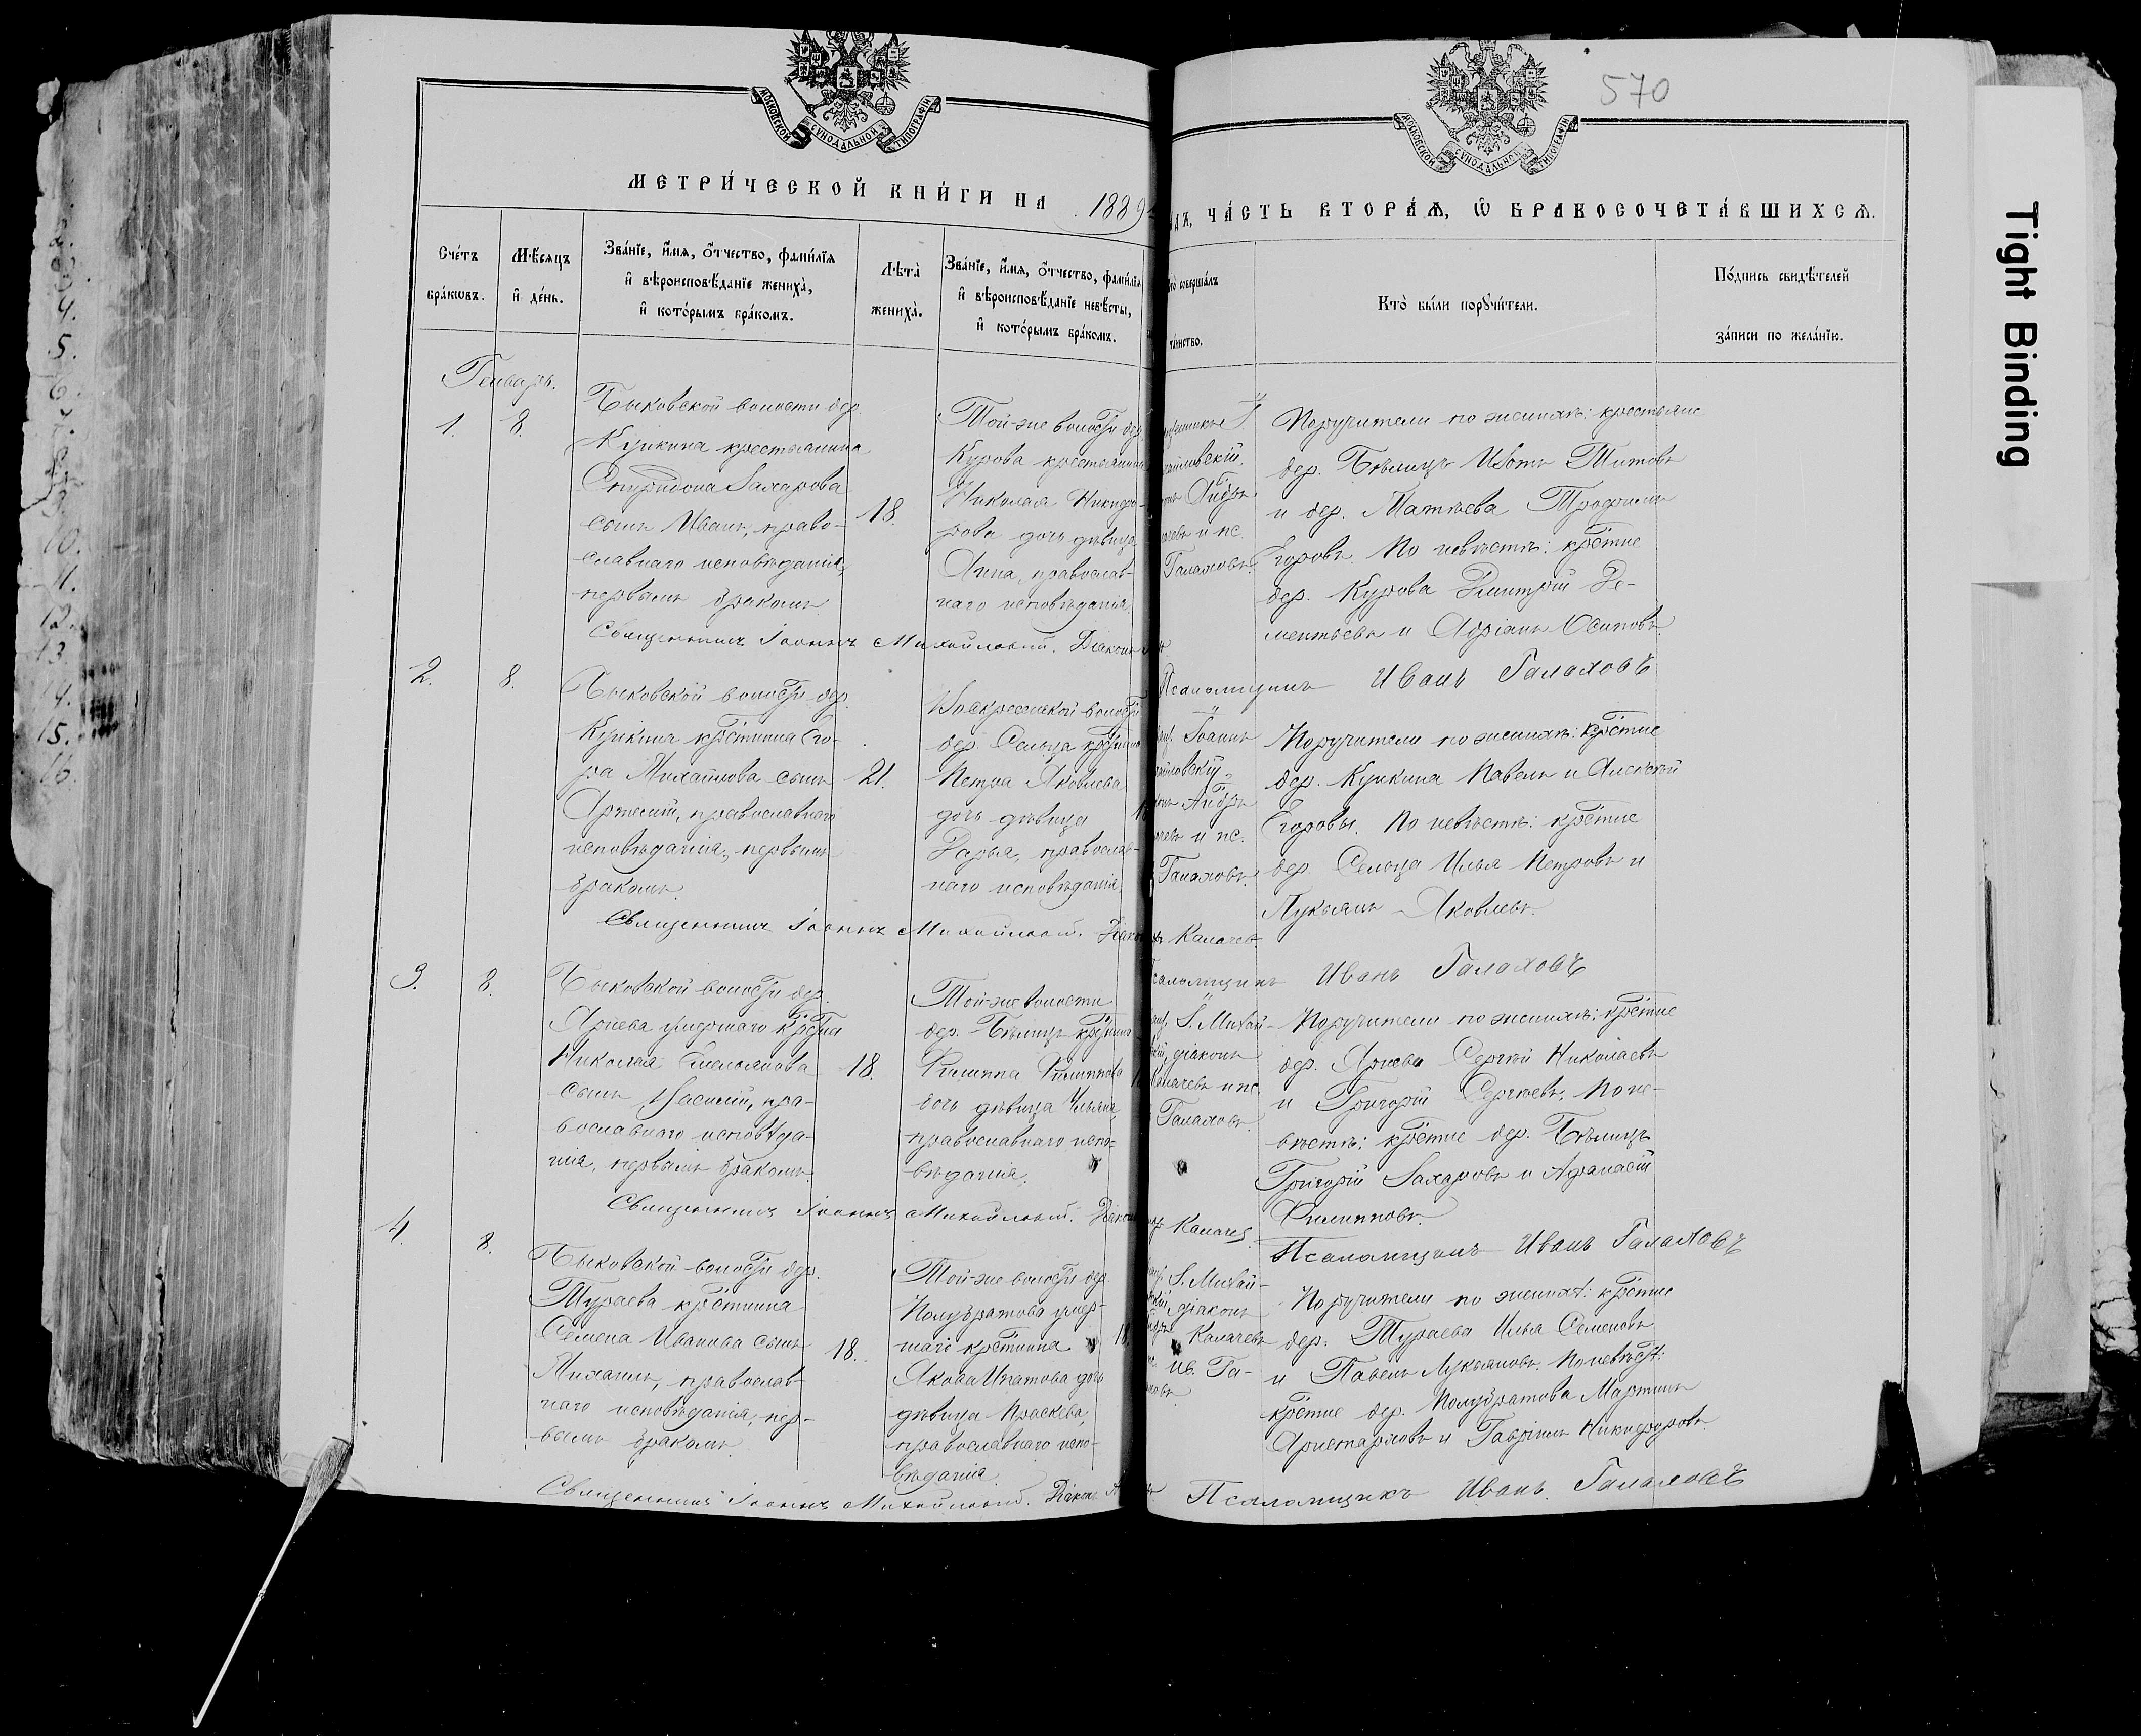 570
МОСКОВСКОЙ СѴНОДАЛЬНОЙ ТИПОГРАФІИ
МОСКОВСКОЙ СѴНОДАЛЬНОЙ ТИПОГРАФІИ
МЕТРИ́ЧЕСКОЙ КНИ́ГИ НА 1889
ДЪ, ЧА́СТЬ ВТОРА́Ѧ, Ѡ БРАКОСОЧЕТА́ВШИХСѦ.
Сче́тъ
бра́ковъ.
Мѣ́сяцъ
и де́нь.
Зва́нїе, и́мѧ, ѻ́тчество, фами́лїѧ
и вѣроисповѣ́данїе жениха̀,
и кото́рымъ бра́комъ.
Лѣта̀
жениха̀.
Зва́нїе, и́мѧ, ѻ́тчество, фами́лїѧ
и вѣроисповѣ́данїе невѣ́сты,
и кото́рымъ бра́комъ.
совершалъ
таинство.
Кто̀ бы́ли порꙋчи́тели.
По́дпись свидѣ́телей
за́писи по жела́нїю.
Генварь.
1.
8.
Быковской волости дер.
Кушкина крестьянина
Спиридона Захарова
сынъ Иванъ, право-
славнаго исповѣданія,
первымъ бракомъ.
18.
Той-же волости дер.
Курова крестьянина
Николая Никифо-
рова дочь дѣвица
Анна, православ-
наго исповѣданія.
Галаховъ.
Поручители по женихѣ: крестьяне
дер. Бѣлицъ Изотъ Титовъ
и дер. Матвѣева Трофимъ
Егоровъ. По невѣстѣ: крестне
дер. Курова Дмитрій Де-
ментьевъ и Адріанъ Осиповъ.
Священникъ Іоаннъ Михайловскій. Діаконъ
Псаломщикъ Иванъ Галаховъ
2.
8.
Быковской волости дер.
Кушкина крестнина Его-
ра Михайлова сынъ
Артемій, православнаго
исповѣданія, первымъ
бракомъ.
21.
Воскресенской волости
дер. Сельца крестнина
Петра Яковлева
дочь дѣвица
Дарья, православ-
наго исповѣданія.
Іоаннъ
и пс.
Галаховъ.
Поручители по женихѣ: крестне
дер. Кушкина Павелъ и Алексѣй
Егоровы. По невѣстѣ: крестне
дер. Сельца Илья Петровъ и
Лукьянъ Яковлевъ.
Священникъ Іоаннъ Михайловскій. Діаконъ Калачевъ
Псаломщикъ Иванъ Галаховъ
3.
8.
Быковской волости дер.
Яриева умершаго крестна
Николая Емельянова
сынъ Василій, пра-
вославнаго исповѣда-
нія, первымъ бракомъ.
18.
Той-же волости
дер. Бѣлицъ крестнина
Филиппа Филиппова
дочь дѣвица Ульяна,
православнаго испо-
вѣданія.
І. Михай-
діаконъ
Калачевъ и пс.
Галаховъ.
Поручители по женихѣ: крестне
дер. Яриева Сергѣй Николаевъ
и Григорій Сергѣевъ. По не-
вѣстѣ: крестне дер. Бѣлицъ
Григорій Захаровъ и Афанасій
Филипповъ.
Священникъ Іоаннъ Михайловскій. Діаконъ Калачев
Псаломщикъ Иванъ Галаховъ
4.
8.
Быковской волости дер.
Тураева крестнина
Семена Иванова сынъ
Михаилъ, православ-
наго исповѣданія, пер-
вымъ бракомъ.
18.
Той-же волости дер.
Полубратова умер-
шаго крестнина
Якова Ипатова дочь
дѣвица Праскева,
православнаго испо-
вѣданія.
І. Михай-
діаконъ
Калачевъ
Ив. Га-
Поручители по женихѣ: крестне
дер. Тураева Илья Семеновъ
и Павелъ Лукьяновъ. По невѣстѣ:
крестне дер. Полубратова Мартинъ
Аристарховъ и Гавріилъ Никифоровъ.
Священникъ Іоаннъ Михайловскій. Діаконъ
Псаломщикъ Иванъ Галаховъ
Tight Binding
4.
5.
6.
7.
9.
10.
11.
12.
13.
14.
15.
16.